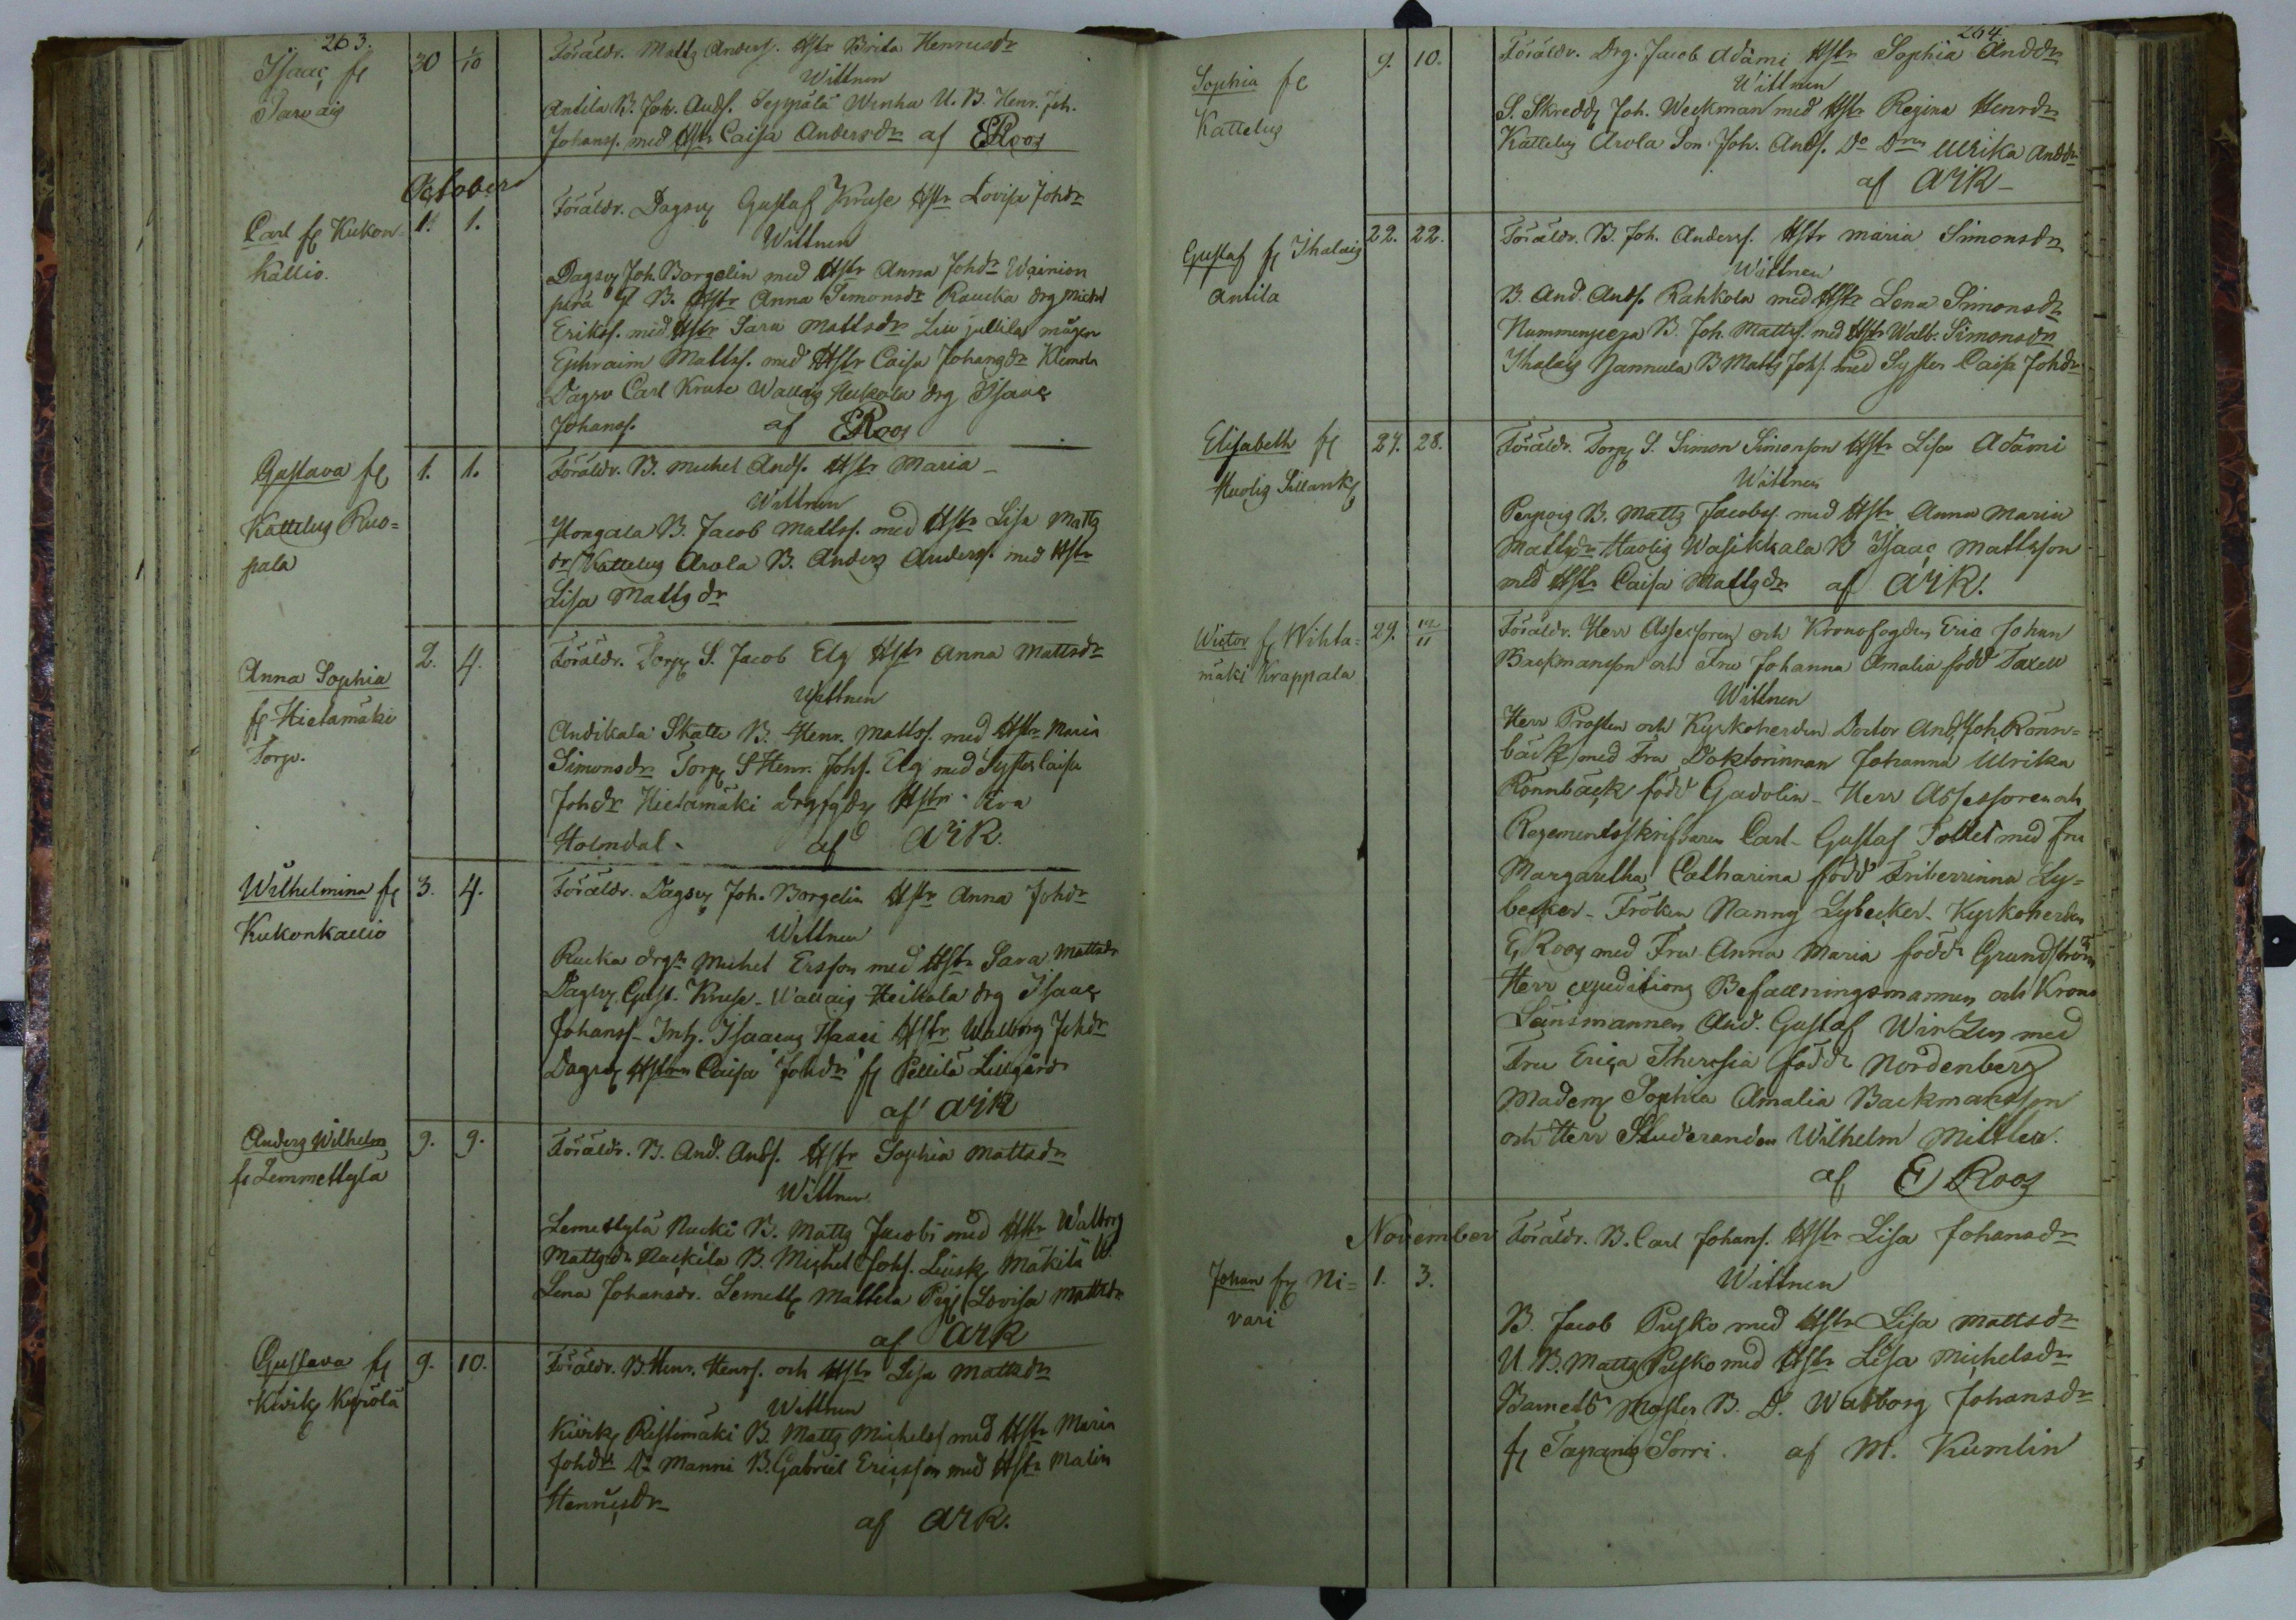 263.
Isaac fr
Sarvais
30 1/10
Föräldr. Matts Anders. Hstr Brita Henricsdr
Wittnen
Antila B. Joh. Ands. Seppälä Winha U. B. Henr. Joh.
Johans. med Hstr Caisa Andersdr af ERoos
October
Carl fr Kukon-
kallio.
1. 1.
Föräldr. Dagsv Gustaf Kruse Hstr Lovisa Johdr
Wittnen
Dagsv Joh. Borgelin med Hstr Anna Johdr Wainion
perä B. Hstr Anna Simonsdr Raucka drg Michel
Eriks. med Hstr Sara Mattsdr Liujullila mågen
Ephraim Mattss. med Hstr Caisa Johansdr Klemola
Dagsv Carl Kruse Wallais Heikola drg Isaac
Johanss. af ERoos
Gustava fr
Kattelus Ruo=
pala
1. 1.
Föräldr. B. Michel Ands. Hstr Maria
Wittnen
Hongala B. Jacob Mattss. med Hstr Lisa Matts
dr Kattelus Arola B. Anders Anderss. med Hstr
Lisa Mattsdr
Anna Sophia
fr Hietamäki
Torp.
2. 4.
Föräldr. Torp S. Jacob Elg Hstr Anna Mattsdr
Wittnen
Andikala Skatte B. Henr. Mattss. med Hstr Maria
Simonsdr Torp S Henr. Johs. Elg med Syster Caisa
Johdr Hietamäki Hstr Eva
Holmdal. af AJR.
Wilhelmina fr
Kukonkallio
3. 4.
Föräldr. Dagsv Joh. Borgelin Hstr Anna Johdr
Wittnen
Rucka drgn Michel Ersson med Hstr Sara Mattsdr
Dagsv. Gust. Kruse Wallais Heikola drg Isaac
Johanss. Inh. Isaacus Hstr Walborg Johdr
Dagsv Hstrn Caisa Johdr fr Pellilä Lillgård
af AJR
Anders Wilhelm
fr Lemmettylä
9. 9.
Föräldr. B. And. Ands. Hstr Sophia Mattsdr
Wittnen
Lemettylä Nucki B. Matts Jacobs med Hstr Walborg
Mattsdr Nuckila B. Michel Johs. Mäkilä
Lena Johansdr. Lemett Mattela Pig Lovisa Mattsdr
af AJR
Gustava fr
Kirik Kyrölä
9. 10.
Föräldr. B. Henr. Henrs. och Hstr Lisa Mattsdr
Wittnen
Kirik Ristimäki B. Matts Michels med Hstr Maria
Johdr Do Manni B. Gabriel Ericsson med Hstr Malin
Henricsdr
af AJR.
264.
Sophia fr
Kattelus
9. 10.
Föräldr. Drg. Jacob Adami Hstr Sophia Anddr
Wittnen
S. Skredd Joh. Weckman med Hstr Regina Henrdr
Kattelus Arola Son Joh. Ands. Do Drn Ulrika Anddr
af AJR
Gustaf fr Ihalais
Antila
22. 22.
Föräldr. B. Joh. Anderss. Hstr Maria Simonsdr
Wittnen
B. And. Ands. Rahkola med Hstr Lena Simonsdr
Nummenpepa B. Joh. Mattss. med Hstr Walb. Simonsdr
Ihalais Jannula B Matts Johs. med Syster Caisa Johdr
Elisabeth fr
Huolis Sillank
27. 28.
Föräldr. Torp S. Simon Simonson Hstr Lisa Adami
Wittnen
B. Matts Jacobss. med Hstr Anna Maria
Mattsdr Huolis Wasikkala B Isaac Mattsson
med Hstr Caisa Mattsdr af AJR.
Wictor fr Wihta=
mäki Krappala
29. 12/11
Föräldr. Herr Assessoren och Kronofogden Eric Johan
Backmansson och Fru Johanna Amalia född Taxell
Wittnen
Herr Prosten och Kyrkoherden Doctor And. Joh. Rönn=
bäck med Fru Doktorinnan Johanna Ulrika
Rönnbäck född Gadolin Herr Assessoren och
Regementsskrifvaren Carl Gustaf Tollet med Fru
Margaretha Catharina född Friherrinna Ly=
becker Fröken Nanny Lybecker Kyrkoherden
E Roos med Fru Anna Maria född Grundström
Herr expeditions Befallningsmannen och Krono
Länsmannen And. Gustaf Wirzen med
Fru Erica Theresia född Nordenberg
Madem Sophia Amalia Backmansson
och Herr Studeranden Wilhelm Mittler.
af E Roos
November
Johan fr Ni=
vari
1. 3.
Föräldr. B. Carl Johans. Hstr Lisa Johansdr
Wittnen
B. Jacob Pusko med Hstr Lisa Mattsdr
U. B. Matts Pusko med Hstr Lisa Michelsdr
Barnets Moster B. D. Walborg Johansdr
fr Tapanis Sorri. af M. Kumlin